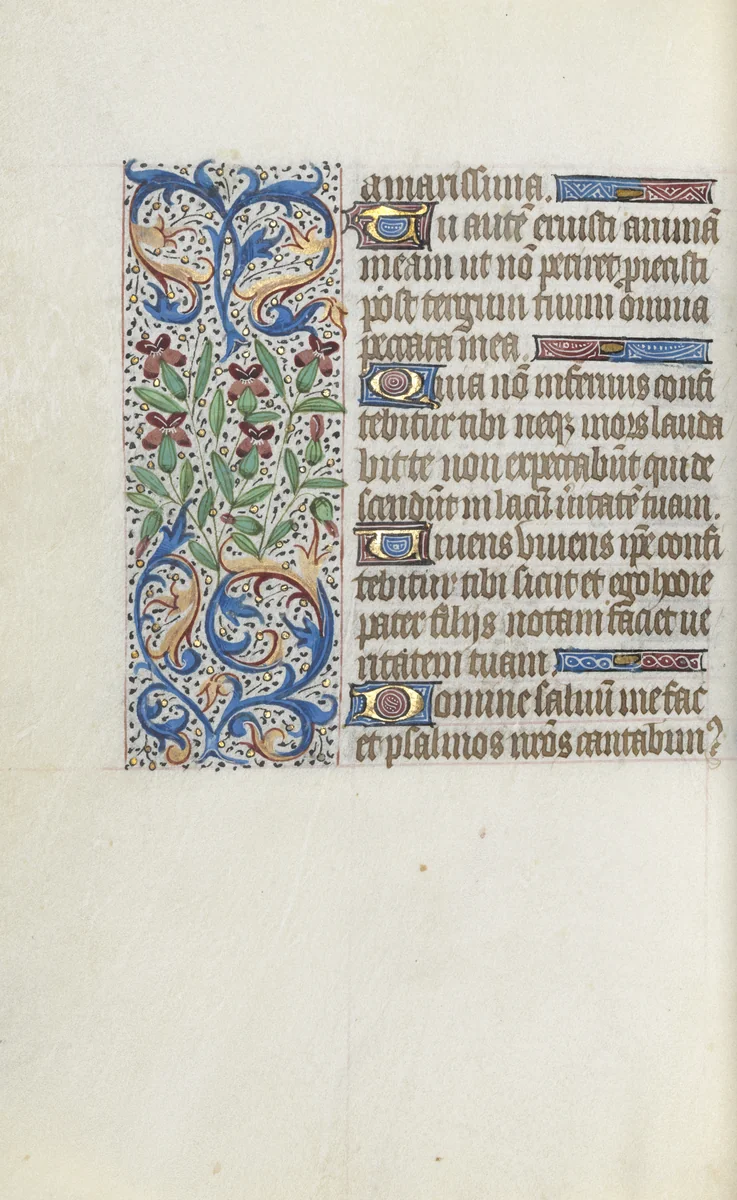 amarissima.
Tu autē eruisti animā
meam ut nō periret, proiecisti
post tergum tuum omnia
peccata mea.
Quia nō infernus confi
tebitur tibi neqꝫ mors lauda
bit te non expectabūt qui de
scendūt in lacū ūitatē tuam.
Viuens viuens ip̄e confi
tebitur tibi sicut et ego hodie
pater filijs notam faciet ue
ritatem tuam.
Domine saluū me fac
et psalmos nr̄os cantabim⁹